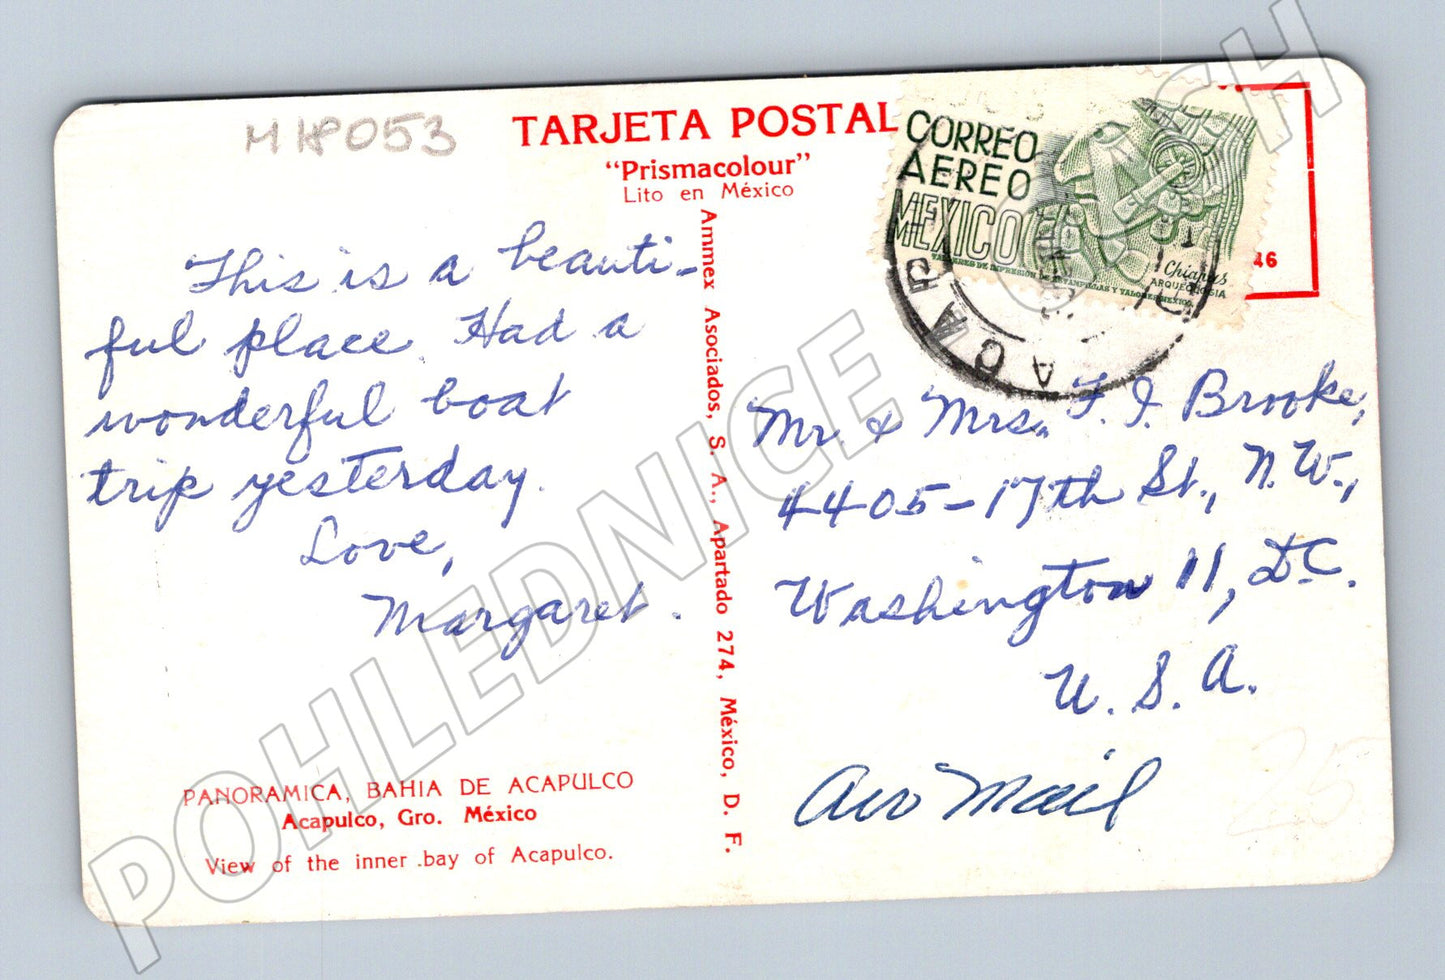 M18053
TARJETA POSTAL
"Prismacolour"
Lito en México
CORREO
AEREO
MEXICO
Chiapas
ARQUEOLOGIA
46
ACAP
This is a beauti-
ful place. Had a
wonderful boat
trip yesterday.
Love,
Margaret.
Ammex Asociados, S. A., Apartado 274, México, D. F.
Mr. & Mrs. F. J. Brooke,
4405-17th St., N.W.,
Washington 11, D.C.
U. S. A.
Air Mail
25
PANORAMICA, BAHIA DE ACAPULCO
Acapulco, Gro. México
View of the inner bay of Acapulco.
POHLEDNICE